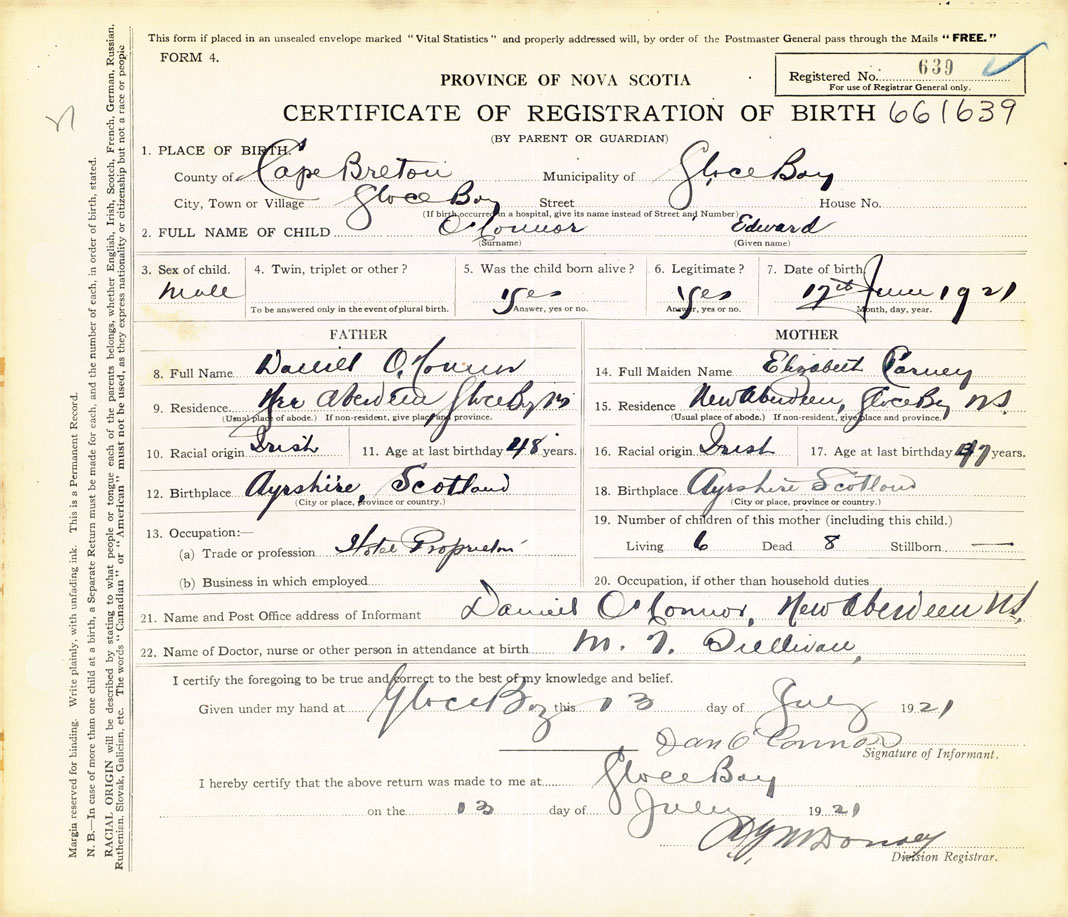 This form if placed in an unsealed envelope marked "Vital Statistics" and properly addressed will, by order of the Postmaster General pass through the Mails "FREE."
FORM 4.
Registered No. 639
For use of Registrar General only.
PROVINCE OF NOVA SCOTIA
CERTIFICATE OF REGISTRATION OF BIRTH 661639
(BY PARENT OR GUARDIAN)
1. PLACE OF BIRTH:
County of Cape Breton Municipality of Glace Bay
City, Town or Village Glace Bay Street House No.
(If birth occurred in a hospital, give its name instead of Street and Number)
2. FULL NAME OF CHILD O'Connor Edward
(Surname) (Given name)
3. Sex of child. 4. Twin, triplet or other? 5. Was the child born alive? 6. Legitimate? 7. Date of birth
Male yes Yes 17th June 1921
To be answered only in the event of plural birth. Answer, yes or no. Answer, yes or no. Month, day, year.
FATHER MOTHER
8. Full Name Daniel O'Connor 14. Full Maiden Name Elizabeth Carney
9. Residence New Aberdeen Glace Bay NS 15. Residence New Aberdeen, Glace Bay N.S.
(Usual place of abode.) If non-resident, give place and province. (Usual place of abode.) If non-resident, give place and province.
10. Racial origin Irish 11. Age at last birthday 48 years. 16. Racial origin Irish 17. Age at last birthday 47 years.
12. Birthplace Ayrshire, Scotland 18. Birthplace Ayrshire Scotland
(City or place, province or country.) (City or place, province or country.)
13. Occupation:— 19. Number of children of this mother (including this child.)
(a) Trade or profession Hotel Proprietor Living 6 Dead 8 Stillborn —
(b) Business in which employed 20. Occupation, if other than household duties
21. Name and Post Office address of Informant Daniel O'Connor, New Aberdeen N.S.
22. Name of Doctor, nurse or other person in attendance at birth M. T. Sullivan,
I certify the foregoing to be true and correct to the best of my knowledge and belief.
Given under my hand at Glace Bay this 13 day of July 1921
Dan O Connor
Signature of Informant.
I hereby certify that the above return was made to me at Glace Bay
on the 13 day of July 1921
Division Registrar.
Margin reserved for binding. Write plainly, with unfading ink. This is a Permanent Record.
N. B.—In case of more than one child at a birth, a Separate Return must be made for each, and the number of each, in order of birth, stated.
RACIAL ORIGIN will be described by stating to what people or tongue each of the parents belongs, whether English, Irish, Scotch, French, German, Russian,
Ruthenian, Slovak, Galician, etc. The words "Canadian" or "American" must not be used, as they express nationality or citizenship but not a race or people